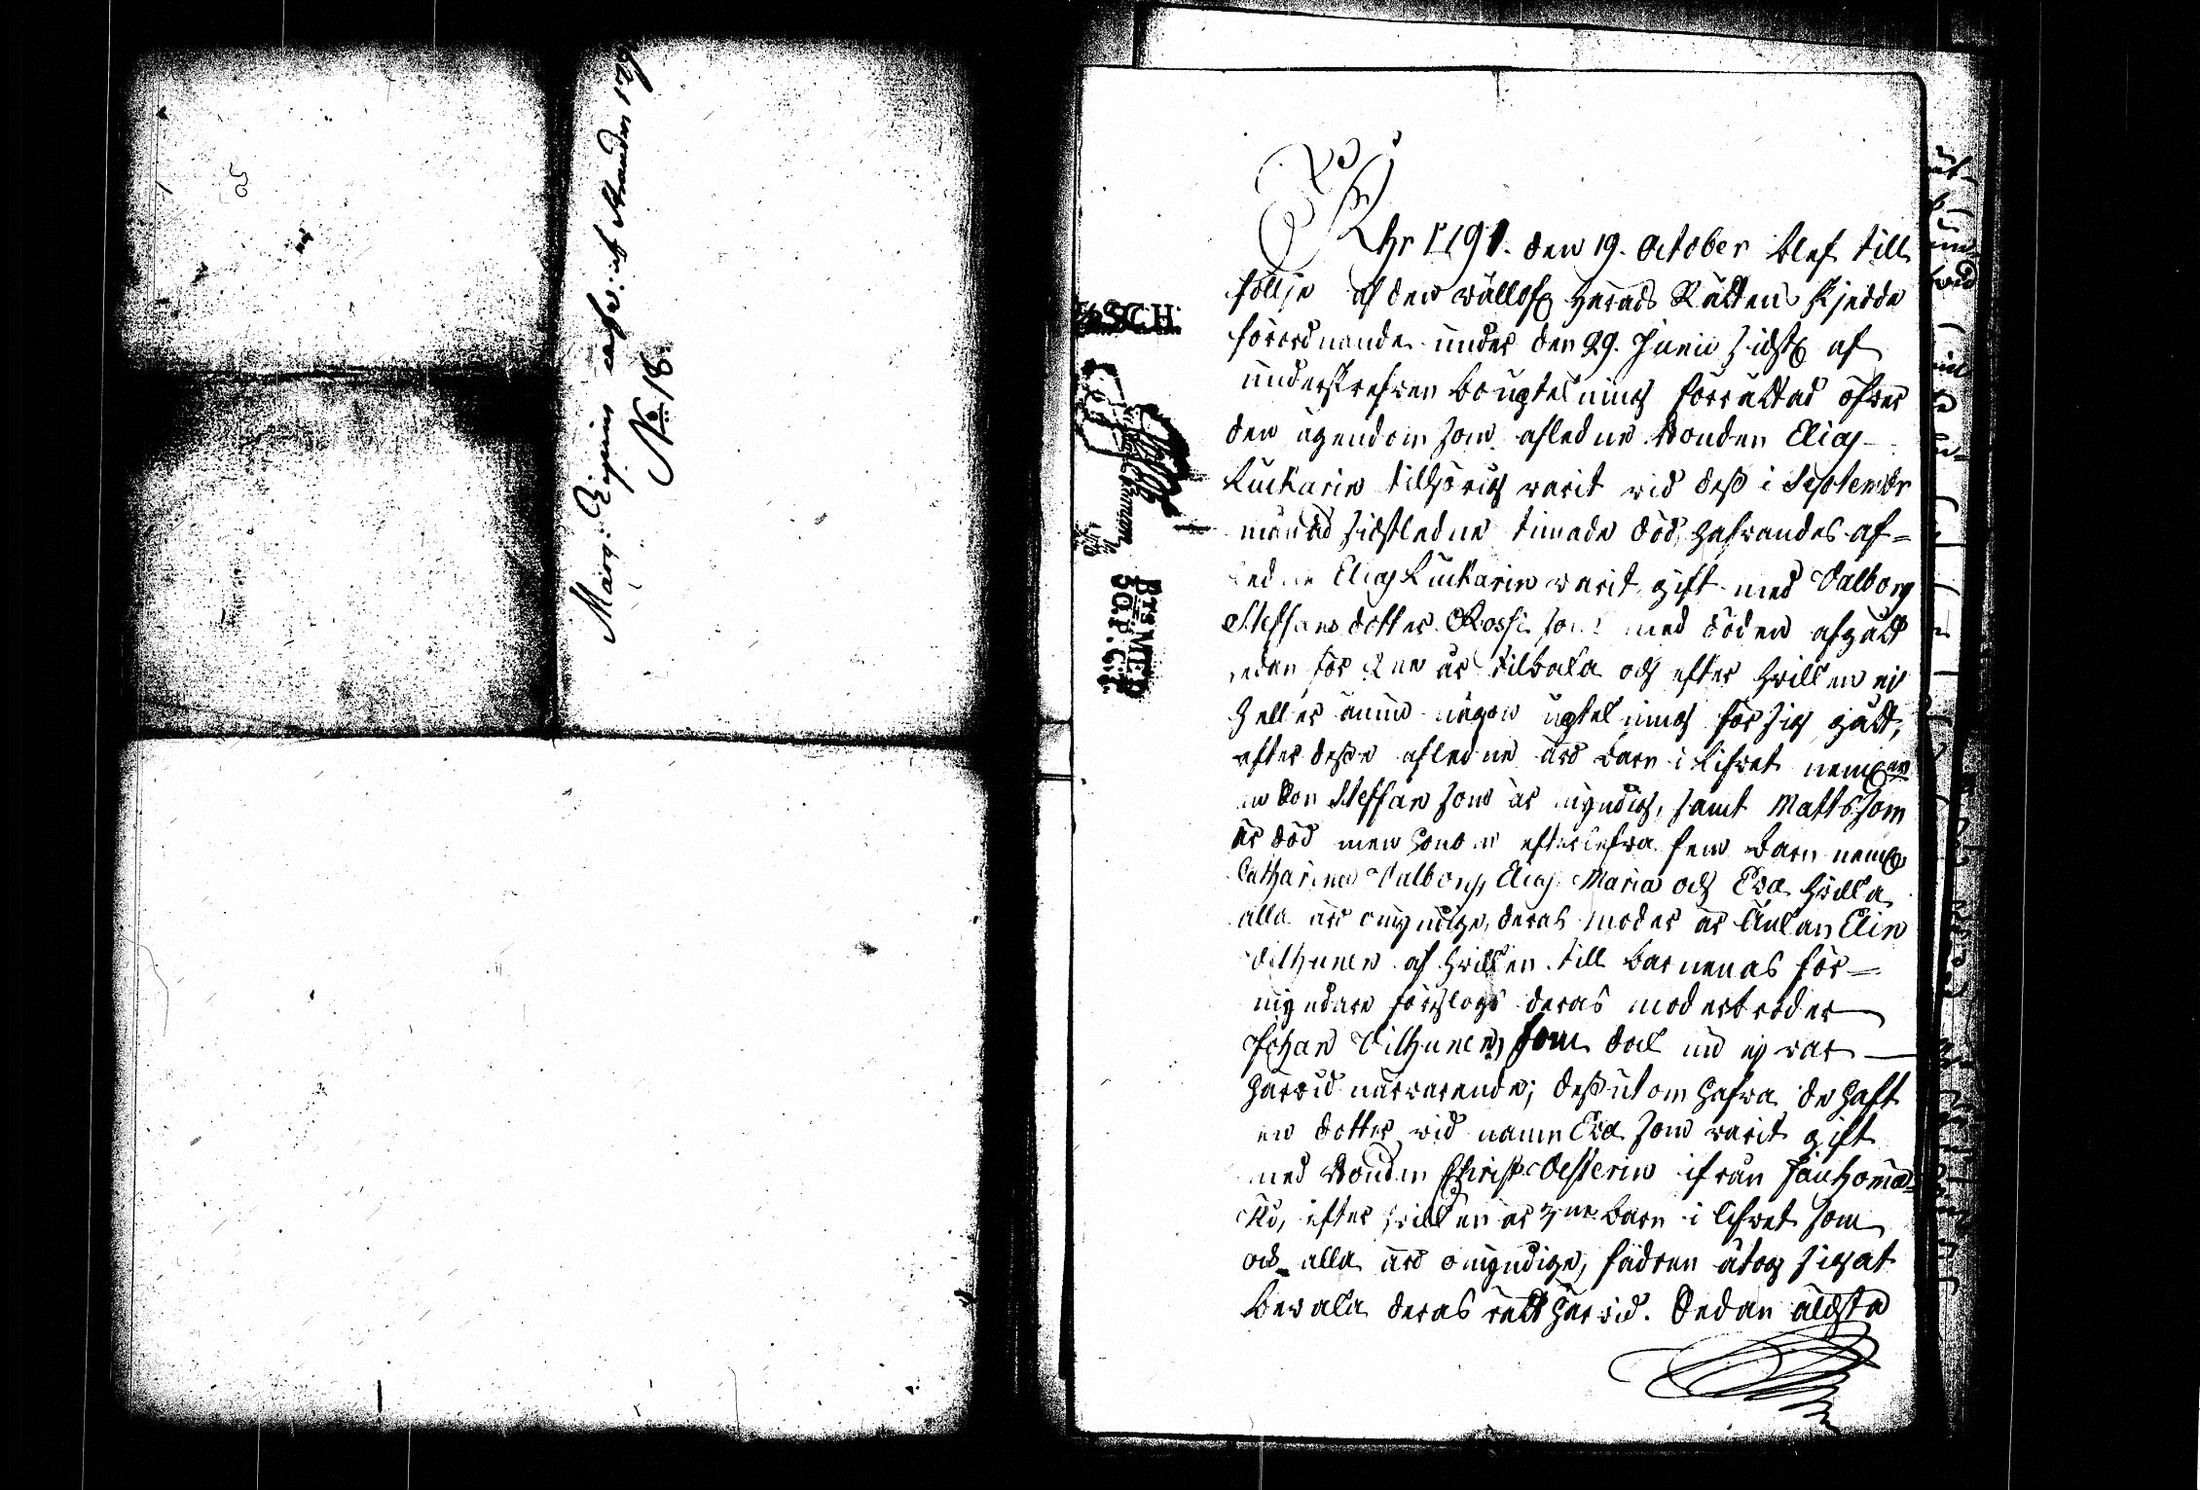 N:o 18
Ahr 1791. den 19. October blef till
följe af den wällofl. Härads Rättens skjedde
förordnande under den 29. Junii sidstl. af
underskrefwen bouptekning förrättad öfwer
den ägendom som afledne Bonden Elias
Kuckarin tillhörig warit wid dess i September
månad sidstledne timade död, hafwandes af=
ledne Elias Kuckarin warit gift med Valborg
Steffansdotter Rossi som med döden afgådt
redan för ane år tilbaka och efter hwilken ej
heller ännu någon uptekning för sig gådt,
efter desse afledne äro barn i lifwet neml.
en Son Steffan som är myndig, samt Matts som
är död men honom efterlefwa fem barn neml.
Catharina Valborg, Elias Maria och Eva hwilka
alla äro omyndige, deras moder är Änkan Elin
Vilhunen af hwilken till barnenas för=
myndare föreslogs deras moderbroder
Johan Vilhunen, som dock nu ej war
härwid närwarande; dessutom hafwa de haft
en dotter wid namn Eva som warit gift
med Bonden Christ. Oesterin ifrån Jouhoma=
ki, efter hwilken är 3:ne barn i lifwet som
ock alla äro omyndige, fadren åtog sig at
bewaka deras rätt härwid. Sedan äldsta
SCH.
BTS MED
30. P. C:T.